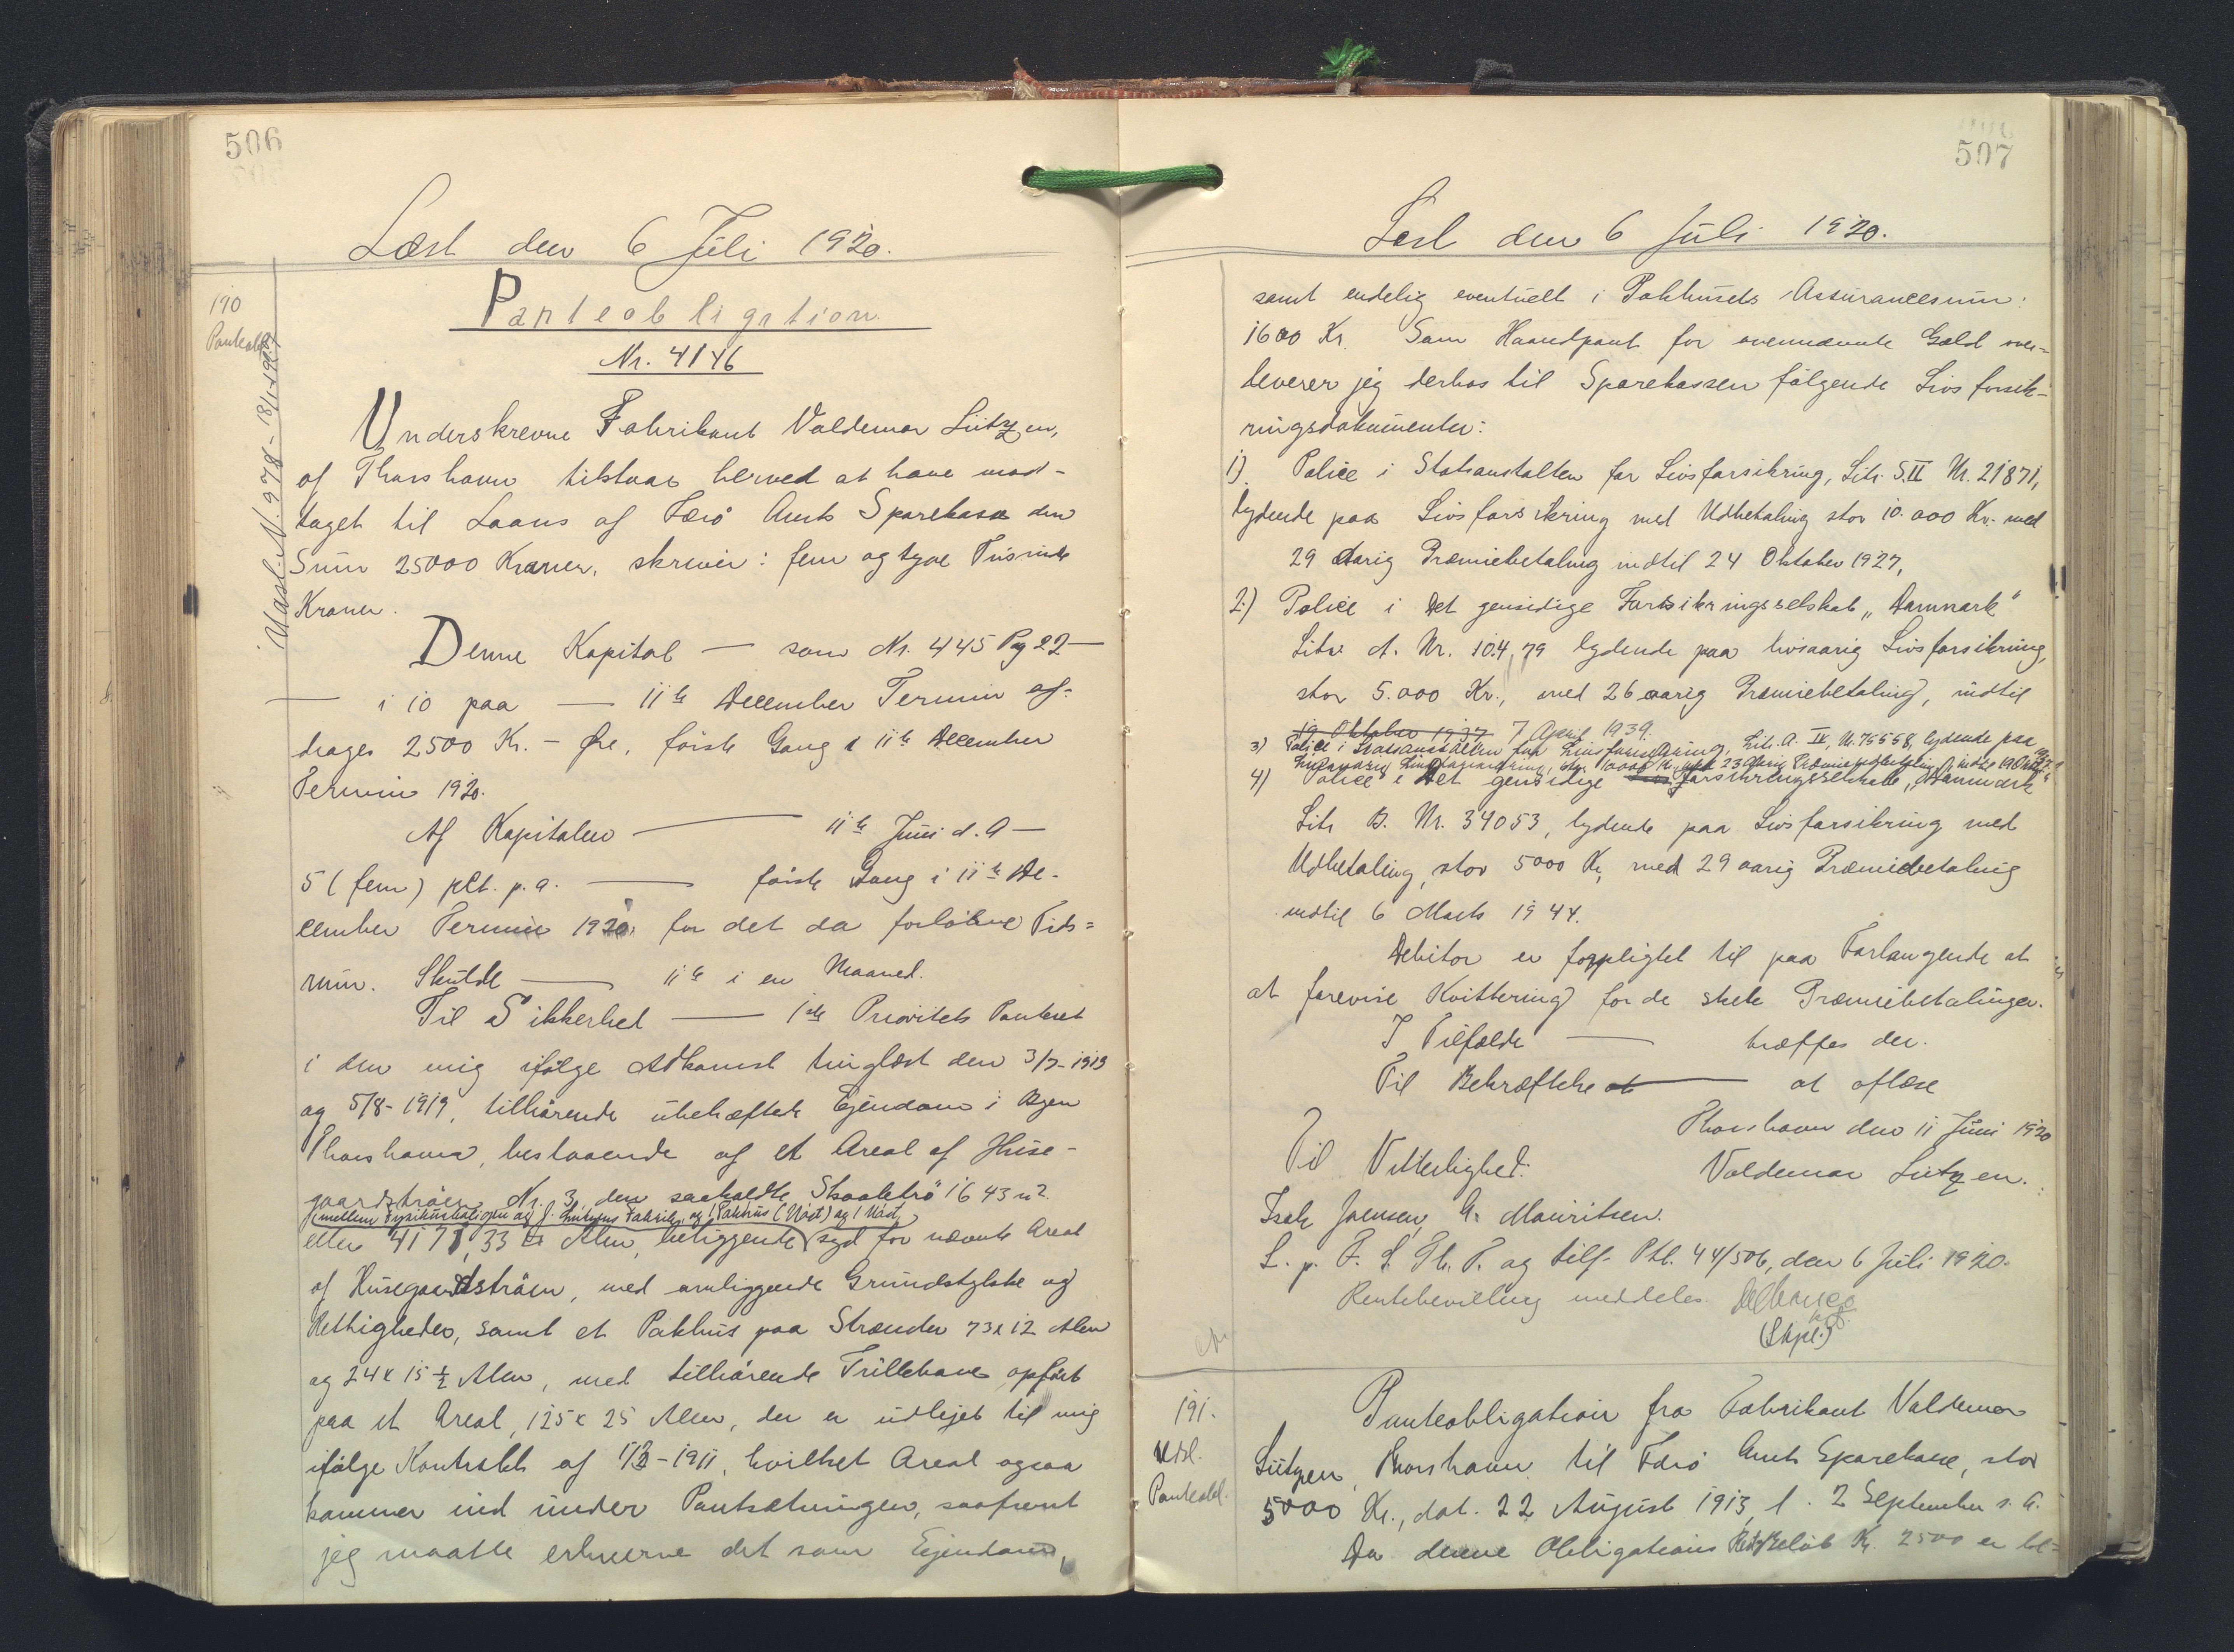 506
Læst den 6 Juli 1920.
190
Panteobl.
Udsl. N. 978 - 18/1-1927
Panteobligation
Nr. 4146
Underskrevne Fabrikant Valdemar Lützen,
af Thorshavn tilstaar herved at have mod-
taget til Laans af Færø Amts Sparekasse den
Sum 25000 Kroner, skriver: fem og tyve Tusinde
Kroner.
Denne Kapital — som Nr. 445 Pag 22 —
— i 10 paa — 11te December Termin af-
drages 2500 Kr. - Øre, første Gang i 11te December
Termin 1920.
Af Kapitalen — 11te Juni d. A —
5 (fem) pCt. p. a. — første Gang i 11te De-
cember Termin 1920, for det da forløbne Tids=
rum. Skulde — 11te i en Maaned.
Til Sikkerhed — 1ste Prioritets Panteret
i den mig ifølge Adkomst tinglæst den 3/7-1913
og 5/8-1919, tilhørende ubehæftede Ejendom i Byen
Thorshavn, bestaaende af et Areal af Huse-
gaardstråen Nr. 3, den saakaldte Skaaletrö 1643 m2
(mellem Fysikusboligen og J. Lützens Fabrik, og 1 Pakhus (Nöst) og 1 Nöst)
eller 4171,33 □ Alen, beliggende syd for nævnte Areal
af Husegaardstråen, med omliggende Grundstykke og
Rettigheder, samt et Pakhus paa Stranden 73 x 12 Alen
og 24 x 15 1/2 Alen, med tilhørende Trillebane opført
paa et Areal, 125 x 25 Alen, der er udlejet til mig
ifølge Kontrakt af 1/3-1911, hvilket Areal ogsaa
kommer ind under Pantsætningen, saafremt
jeg maatte erhverve det som Ejendom,
507
Læst den 6 Juli 1920.
samt endelig eventuelt i Pakhusets Assurancesum:
1600 Kr. Som Haandpant for ovennævnte Gæld over=
leverer jeg derhos til Sparekassen følgende Livsforsik-
ringsdokumenter:
1) Police i Statsanstalten for Livsforsikring, Litr. S.II Nr. 21871,
lydende paa Livsforsikring med Udbetaling stor 10.000 Kr. med
29 aarig Præmiebetaling indtil 24 Oktober 1927,
2.) Police i Det gensidige Forsikringsselskab "Danmark"
Litr. A. Nr. 104,79 lydende paa livsvarig Livsforsikring,
stor 5.000 Kr., med 26 aarig Præmiebetaling, indtil
19 Oktober 1937 7 April 1939.
3) Police i Statsanstalten for Livsforsikring, Litr. A. IV, Nr. 75558, lydende paa
livsvarig Livsforsikring, stor 10000 Kr. med 23 aarig Præmiebetaling indtil 19 Oktbr. 1937
4) Police i Det gensidige Forsikringsselskab, "Danmark"
Litr. B. Nr. 34053, lydende paa Livsforsikring med
Udbetaling, stor 5000 Kr, med 29 aarig Præmiebetaling
indtil 6 Marts 1944.
Debitor er forpligtet til paa Forlangende at
at forevise Kvittering for de skete Præmiebetalinger.
I Tilfælde — træffes der.
Til Bekræftelse — at aflæse
Thorshavn den 11 Juni 1920
Til Vitterlighed: Valdemar Lützen.
Isak Joensen, G. Mauritsen.
L. p. F. S. Th. T. og tilf. Ptb. 44/506, den 6 Juli 1920.
Rentebevilling meddeles.
(Stpl.)
191.
Udsl.
Panteobl.
Panteobligation fra Fabrikant Valdemar
Lützen, Thorshavn til Færø Amts Sparekasse, stor
5000 Kr., dat. 22 August 1913, l. 2 September s. A.
Da denne Obligations Restbeløb Kr. 2500 er be-